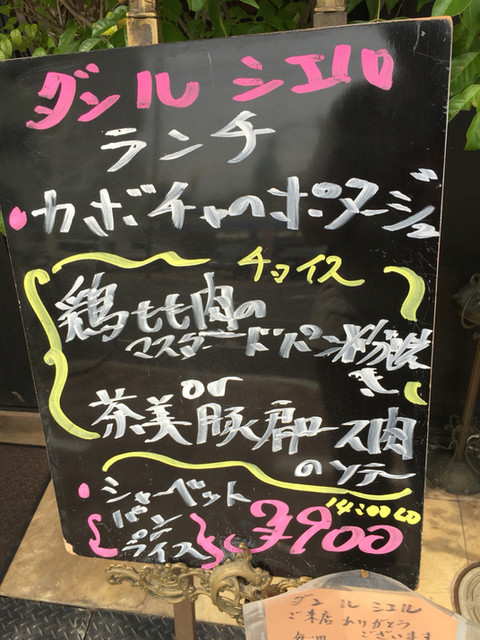 ダンル シエル
ランチ
・カボチャのポタージュ
チョイス
鶏もも肉の
マスタードパン粉焼
き
or
茶美豚肩ロース肉
のソテー
・シャーベット
パン
ライス
14:00 LO
¥900
ダン ル シエル
ご来店 ありがとう
ございます